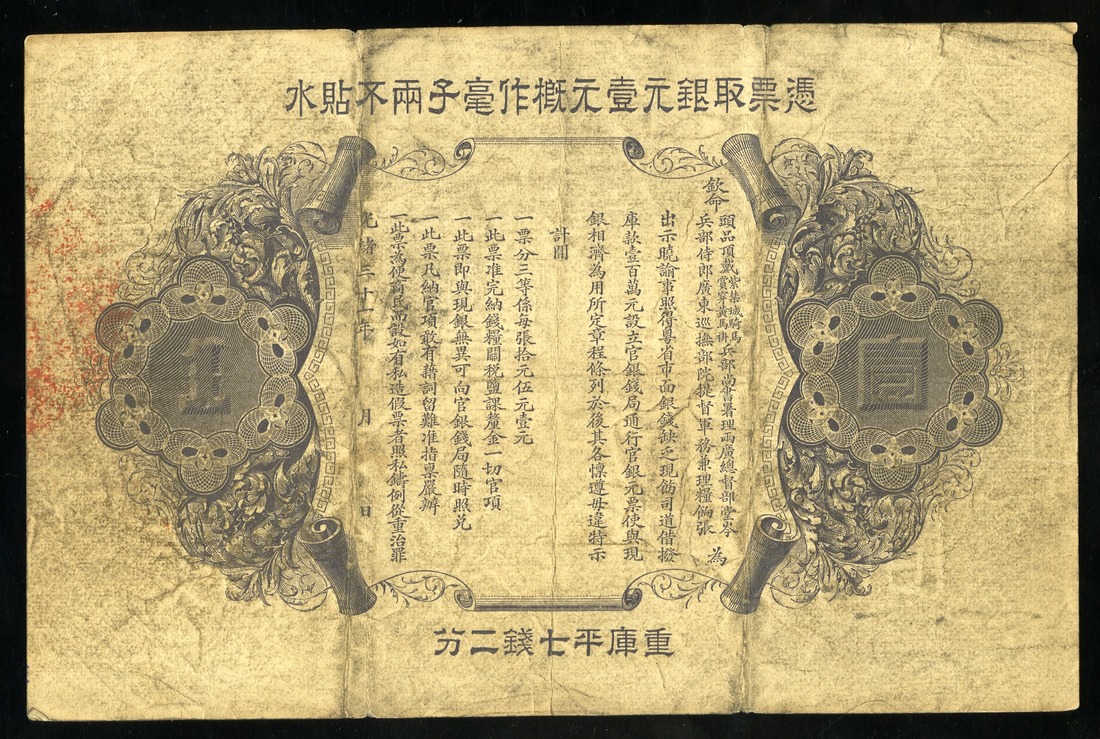 憑票取銀元壹元概作毫子兩不貼水
欽命
頭品頂戴紫禁城騎馬賞穿黃馬褂兵部尚書署理兩廣總督部堂岑
兵部侍郎廣東巡撫部院提督軍務兼理糧餉張
為
出示曉諭事照得粵省市面銀錢缺乏現飭司道借撥
庫款壹百萬元設立官銀錢局通行官銀元票使與現
銀相濟為用所定章程條列於後其各懍遵毋違特示
計開
一票分三等係每張拾元伍元壹元
一此票准完納錢糧關税鹽課釐金一切官項
一此票即與現銀無異可向官銀錢局隨時照兑
一此票凡納官項敢有藉詞留難准指稟嚴辦
一此票為便商民而設如有私造假票者照私鑄例從重治罪
光緒三十一年 月 日
壹
圓
重庫平七錢二分